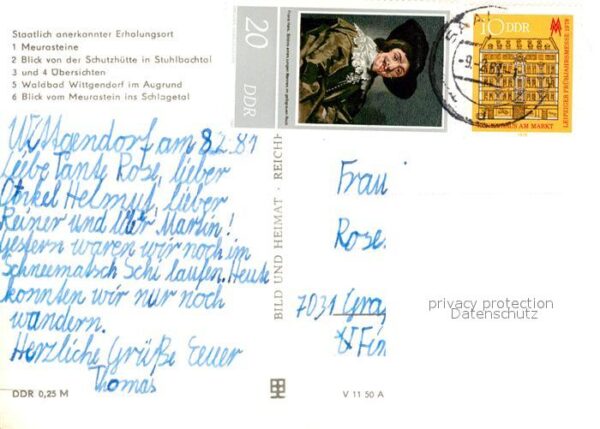 Staatlich anerkannter Erholungsort
1 Meurasteine
2 Blick von der Schutzhütte in Stuhlbachtal
3 und 4 Übersichten
5 Waldbad Wittgendorf im Augrund
6 Blick vom Meurastein ins Schlagetal
Wittgendorf am 8.2.81
Liebe Tante Rose, lieber
Onkel Helmut, lieber
Reiner und Martin!
Gestern waren wir noch im
Schneematsch Schi laufen. Heute
konnten wir nur noch
wandern.
Herzliche Grüße Euer
Thomas
DDR 0,25 M
BILD UND HEIMAT · REICH
20
DDR
10 DDR
LEIPZIGER FRÜHJAHRSMESSE 1978
AM MARKT
Frau
Rose
7031
privacy protection
Datenschutz
V 11 50 A